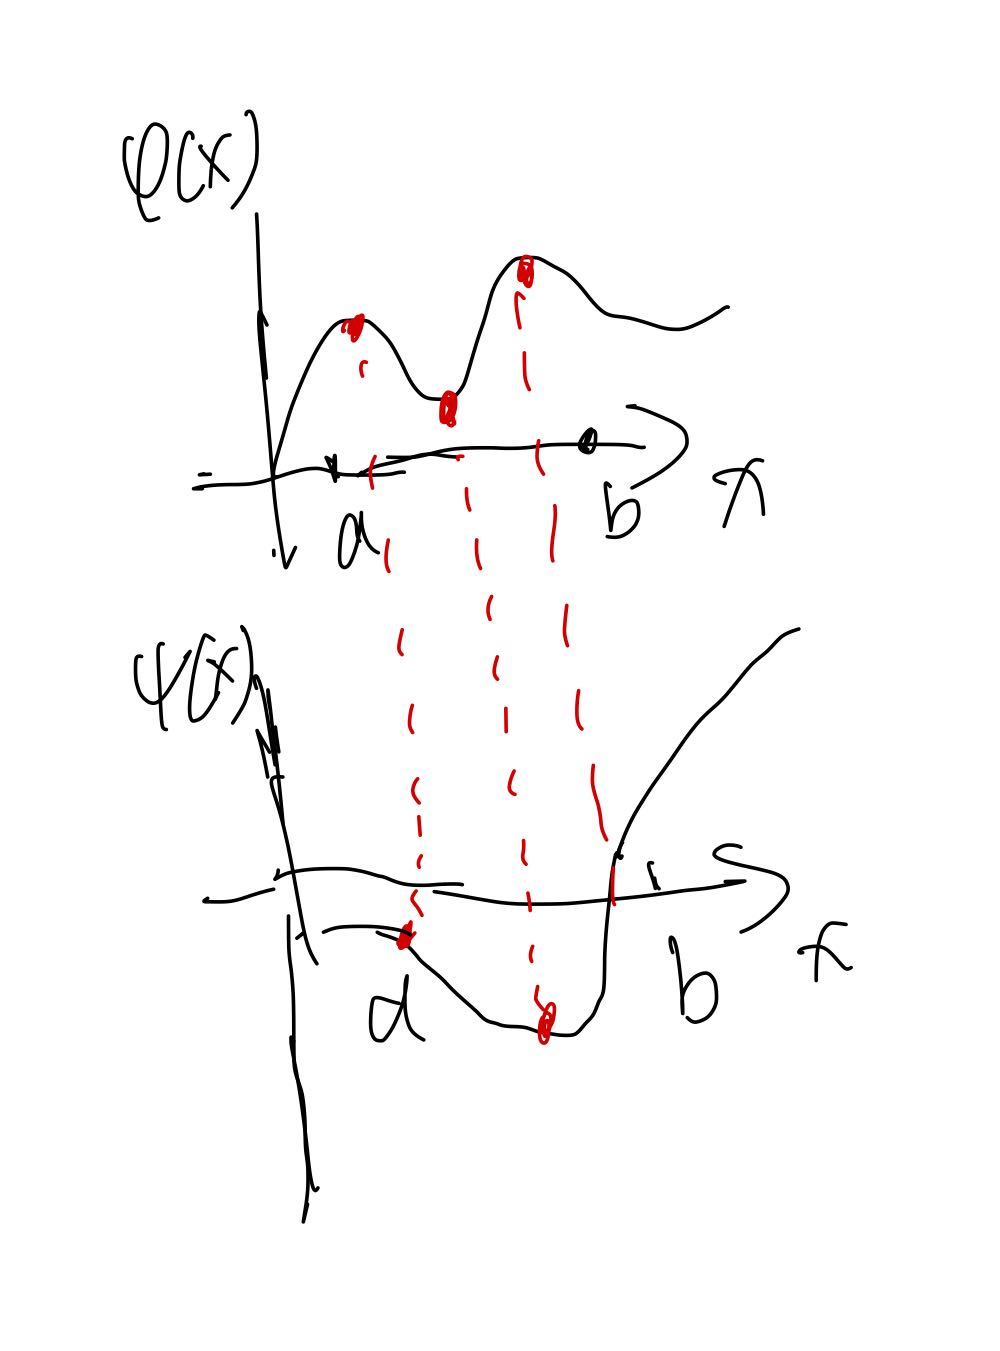 φ(x)
a b x
ψ(x)
a b x